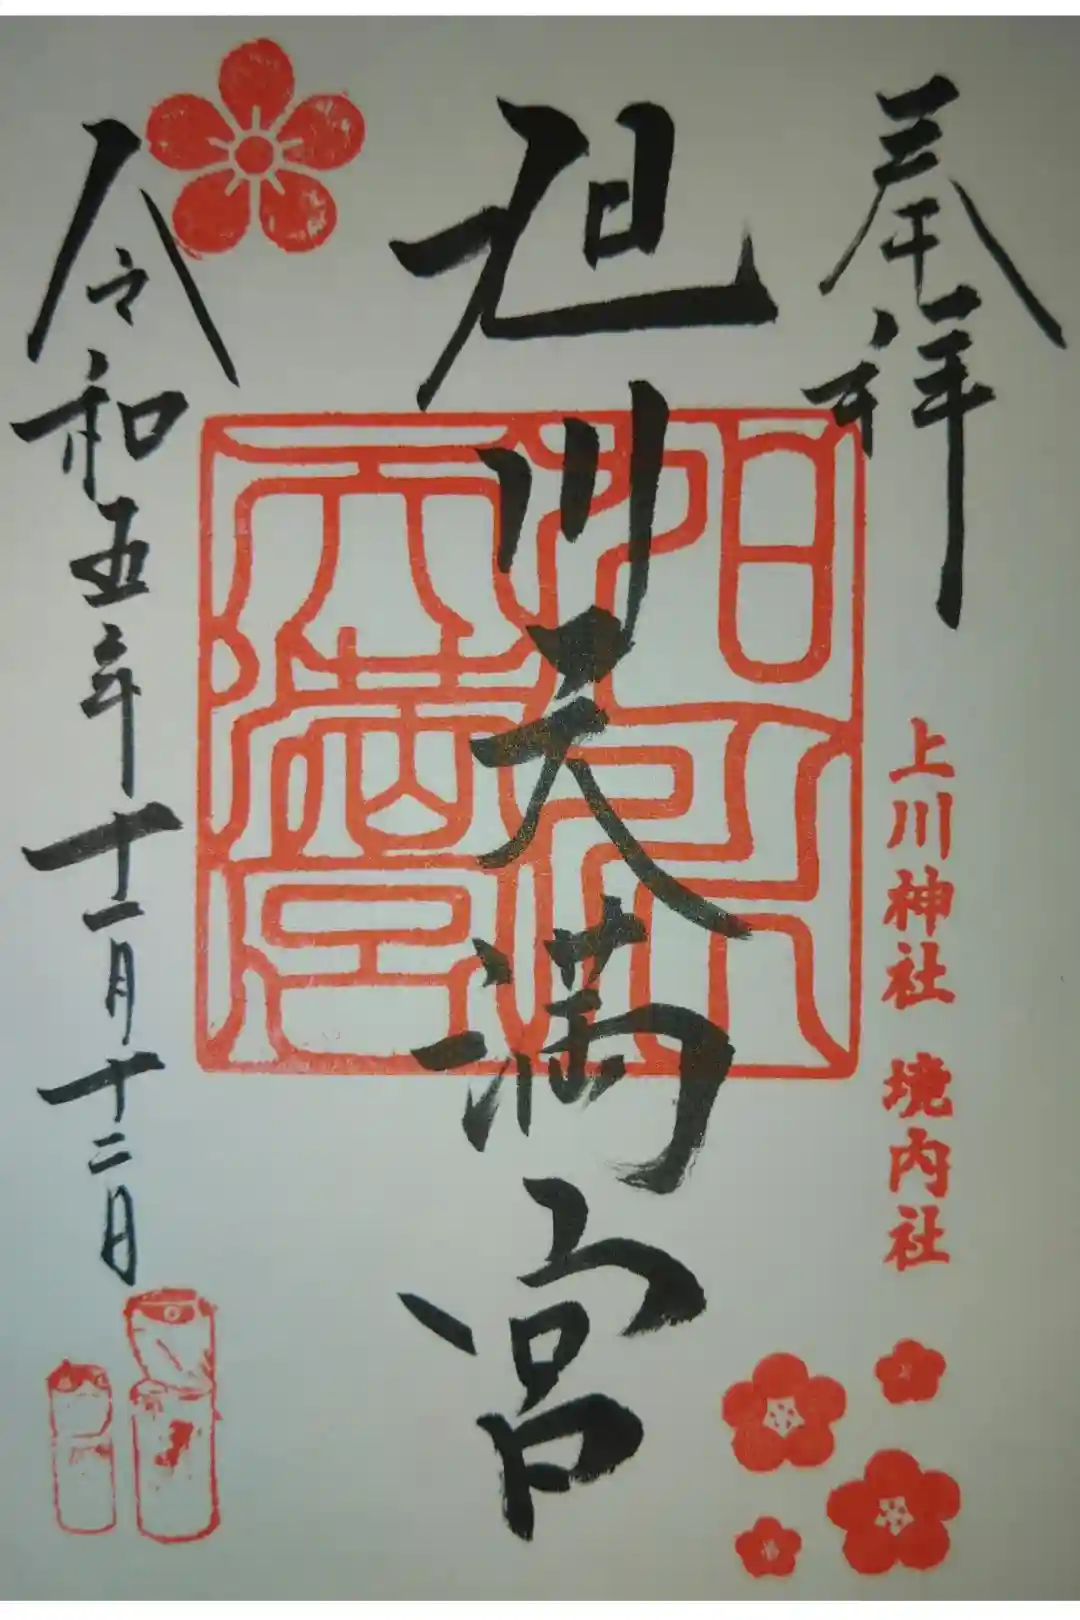 奉拝
上川神社 境内社
旭川天満宮
旭川天満宮
令和五年十一月十二日